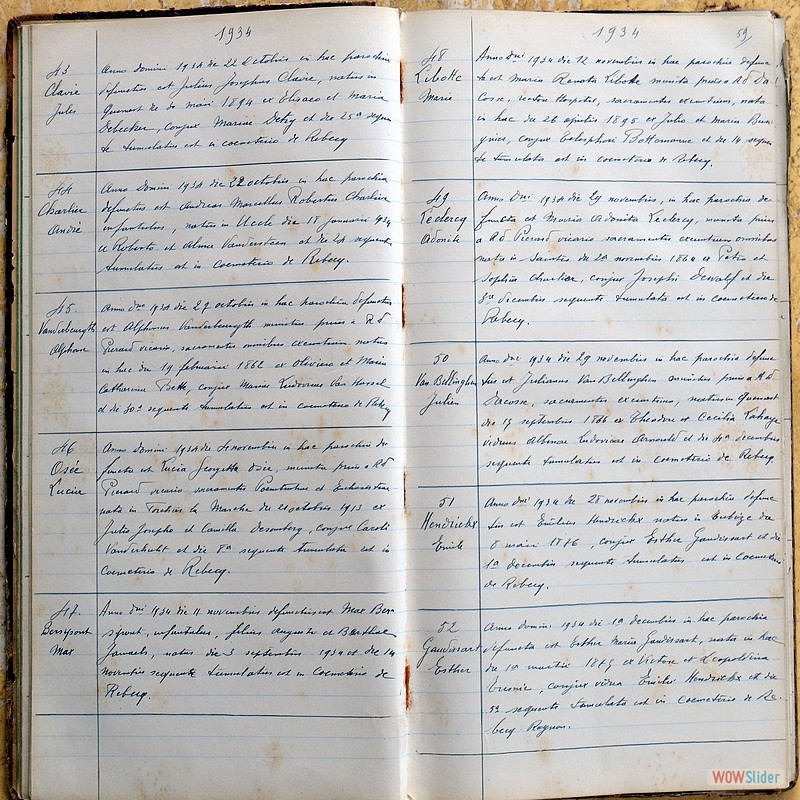 1934
43
Clavie
Jules
Anno domini 1934 die 22 octobris in hac parochia
defunctus est Julius Josephus Clavie, natus in
Quenast die 20 maii 1894 ex Elisaeo et Maria
Debecker, conjux Mariae Detry et die 25a sequen
te tumulatus est in coemeterio de Rebecq
44
Charlier
André
Anno domini 1934 die 22 octobris in hac parochia
defunctus est Andreas Marcellus Robertus Charlier
infantulus, natus in Uccle die 18 januarii 1934
ex Roberto et Albina Vandersteen et die 24 sequente
tumulatus est in coemeterio de Rebecq.
45
Vanderbeurgth
Alphonse
Anno dni 1934 die 27 octobris in hac parochia defunctus
est Alphonsus Vanderbeurgth munitus prius a Rd
Pierard vicario, sacramentis omnibus exeuntium natus
in hac die 19 februarii 1862 ex Oliviero et Maria
Catharina Bette, conjux Mariae Ludovicae Van Hassel
et die 30a sequente tumulatus est in coemeterio de Rebecq
46
Osée
Lucie
Anno domini 1934 die 4 novembris in hac parochia de
functa est Lucia Georgetta Osée, munita prius a Rd
Pierard vicario sacramentis Poenitentiae et Eucharistiae
nata in la Marche die octobris 1913 ex
Julio Josepho et Camilla Desomberg, conjux Caroli
Vanderhulst et die 8a sequente tumulata est in
Coemeterio de Rebecq.
47.
Bersipont
Max
Anno dni 1934 die 11 novembris defunctus est Max Ber
sipont, infantulus, filius Augusti et Berthae
natus die 3 septembris 1934 et die 14
novembris sequente tumulatus est in Coemeterio de
Rebecq.
1934
59
48
Libotte
Marie
Anno dni 1934 die 12 novembris in hac parochia defunc
ta est Maria Renata Libotte munita prius a Rd Da
Cosse, rectore Hospitii, sacramentis exeuntium, nata
in hac die 26 aprilis 1895 ex Julio et Maria
conjux Telesphori Bottemanne et die 14 sequen
te tumulata est in coemeterio de Rebecq.
49
Leclercq
Adonite
Anno dni 1934 die 29 novembris, in hac parochia de
functa est Maria Adonita Leclercq, munita prius
a Rd Pierard vicario sacramentis exeuntium omnibus
nata in Saintes die 20 novembris 1864 ex Petro et
Sophia Charlier, conjux Josephi Dewolf et die
3a decembris sequente tumulata est in coemeterio de
Rebecq.
50
Van Bellinghen
Julien
Anno dni 1934 die 29 novembris in hac parochia defunc
tus est Julianus Van Bellinghen munitus prius a Rd
Dacosse, sacramentis exeuntium, natus in Quenast
die 17 septembris 1866 ex Theodoro et Cecilia
viduus Albinae Ludovicae Arnould et die 4a decembris
sequente tumulatus est in coemeterio de Rebecq
51
Hendrickx
Emile
Anno dni 1934 die 28 novembris in hac parochia defunc
tus est Emilius Hendrickx natus in Tubize die
8 maii 1876, conjux Esther Gaudissart et die
1a decembris sequente tumulatus est in coemete
rio de Rebecq.
52
Gaudissart
Esther
Anno domini 1934 die 1a decembris in hac parochia
defuncta est Esther Maria Gaudissart, nata in hac
die 10 martii 1875 ex Victore et Leopoldina
conjux vidua Emilii Hendrickx et die
5a sequente tumulata est in Coemeterio de Re
becq Rognon.
WOWSlider